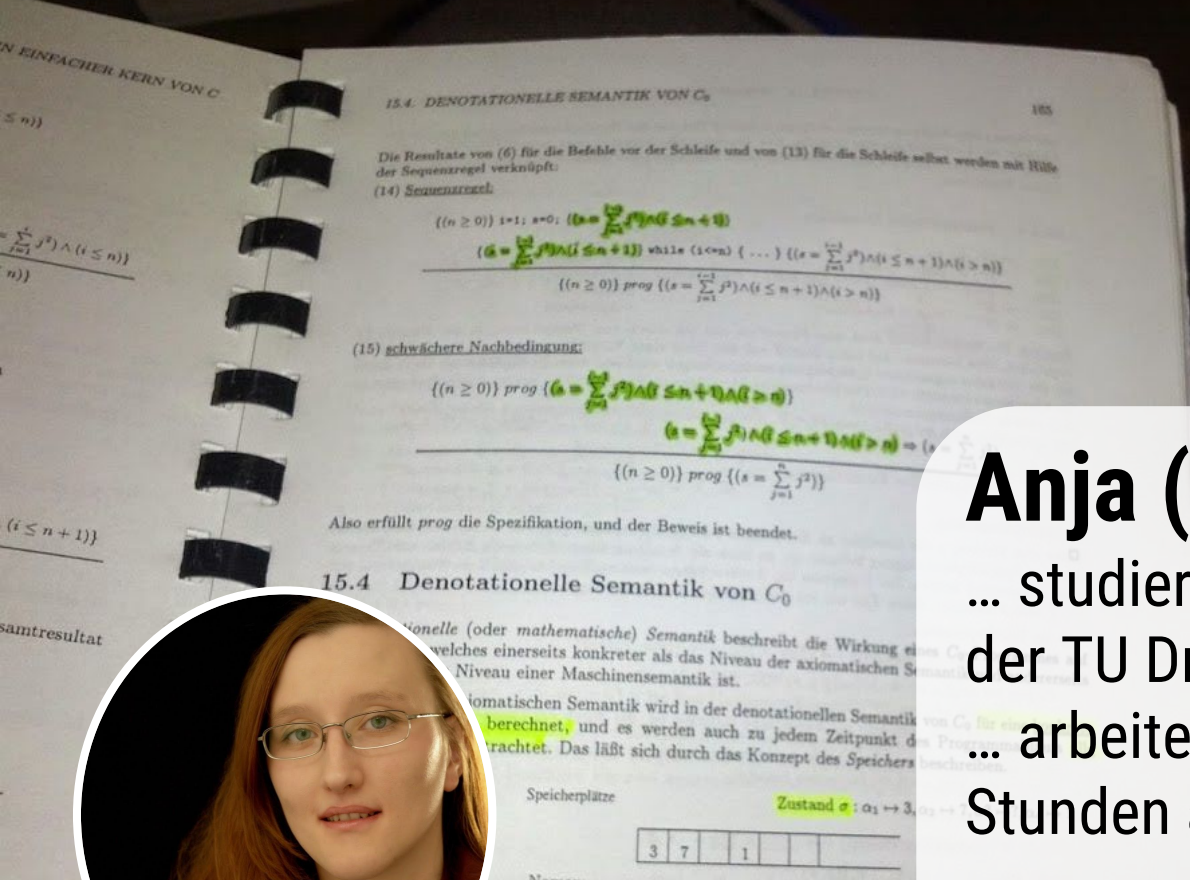 N EINFACHER KERN VON C
≤ n)}
= ∑ j²) ∧ (i ≤ n)}
n)}
(i ≤ n + 1)}
samtresultat
15.4. DENOTATIONELLE SEMANTIK VON C₀ 165
Die Resultate von (6) für die Befehle vor der Schleife und von (13) für die Schleife selbst werden mit Hilfe
der Sequenzregel verknüpft:
(14) Sequenzregel:
{(n ≥ 0)} i=1; s=0; {(s = ∑_{j=1}^{i−1} j²)∧(i ≤ n + 1)}
{(s = ∑_{j=1}^{i−1} j²)∧(i ≤ n + 1)} while (i<=n) { ... } {(s = ∑_{j=1}^{i−1} j²)∧(i ≤ n + 1)∧(i > n)}
{(n ≥ 0)} prog {(s = ∑_{j=1}^{i−1} j²)∧(i ≤ n + 1)∧(i > n)}
(15) schwächere Nachbedingung:
{(n ≥ 0)} prog {(s = ∑_{j=1}^{i−1} j²)∧(i ≤ n + 1)∧(i > n)}
(s = ∑_{j=1}^{i−1} j²)∧(i ≤ n + 1)∧(i > n) ⇒ (s
{(n ≥ 0)} prog {(s = ∑_{j=1}^{n} j²)}
Also erfüllt prog die Spezifikation, und der Beweis ist beendet.
15.4 Denotationelle Semantik von C₀
tionelle (oder mathematische) Semantik beschreibt die Wirkung ei
welches einerseits konkreter als das Niveau der axiomatischen Se
Niveau einer Maschinensemantik ist.
iomatischen Semantik wird in der denotationellen Semantik von C₀ für ein
berechnet, und es werden auch zu jedem Zeitpunkt d Programm
trachtet. Das läßt sich durch das Konzept des Speichers beschreiben.
Speicherplätze Zustand σ : α₁ ↦ 3,
3 7 1
Anja (
… studier
der TU Dr
… arbeite
Stunden